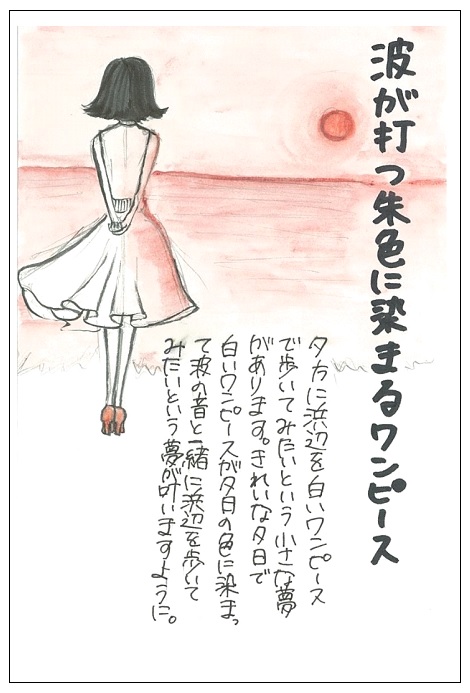 波が打つ朱色に染まるワンピース
夕方に浜辺を白いワンピース
で歩いてみたいという小さな夢
があります。きれいな夕日で
白いワンピースが夕日の色に染まっ
て波の音と一緒に浜辺を歩いて
みたいという夢が叶いますように。